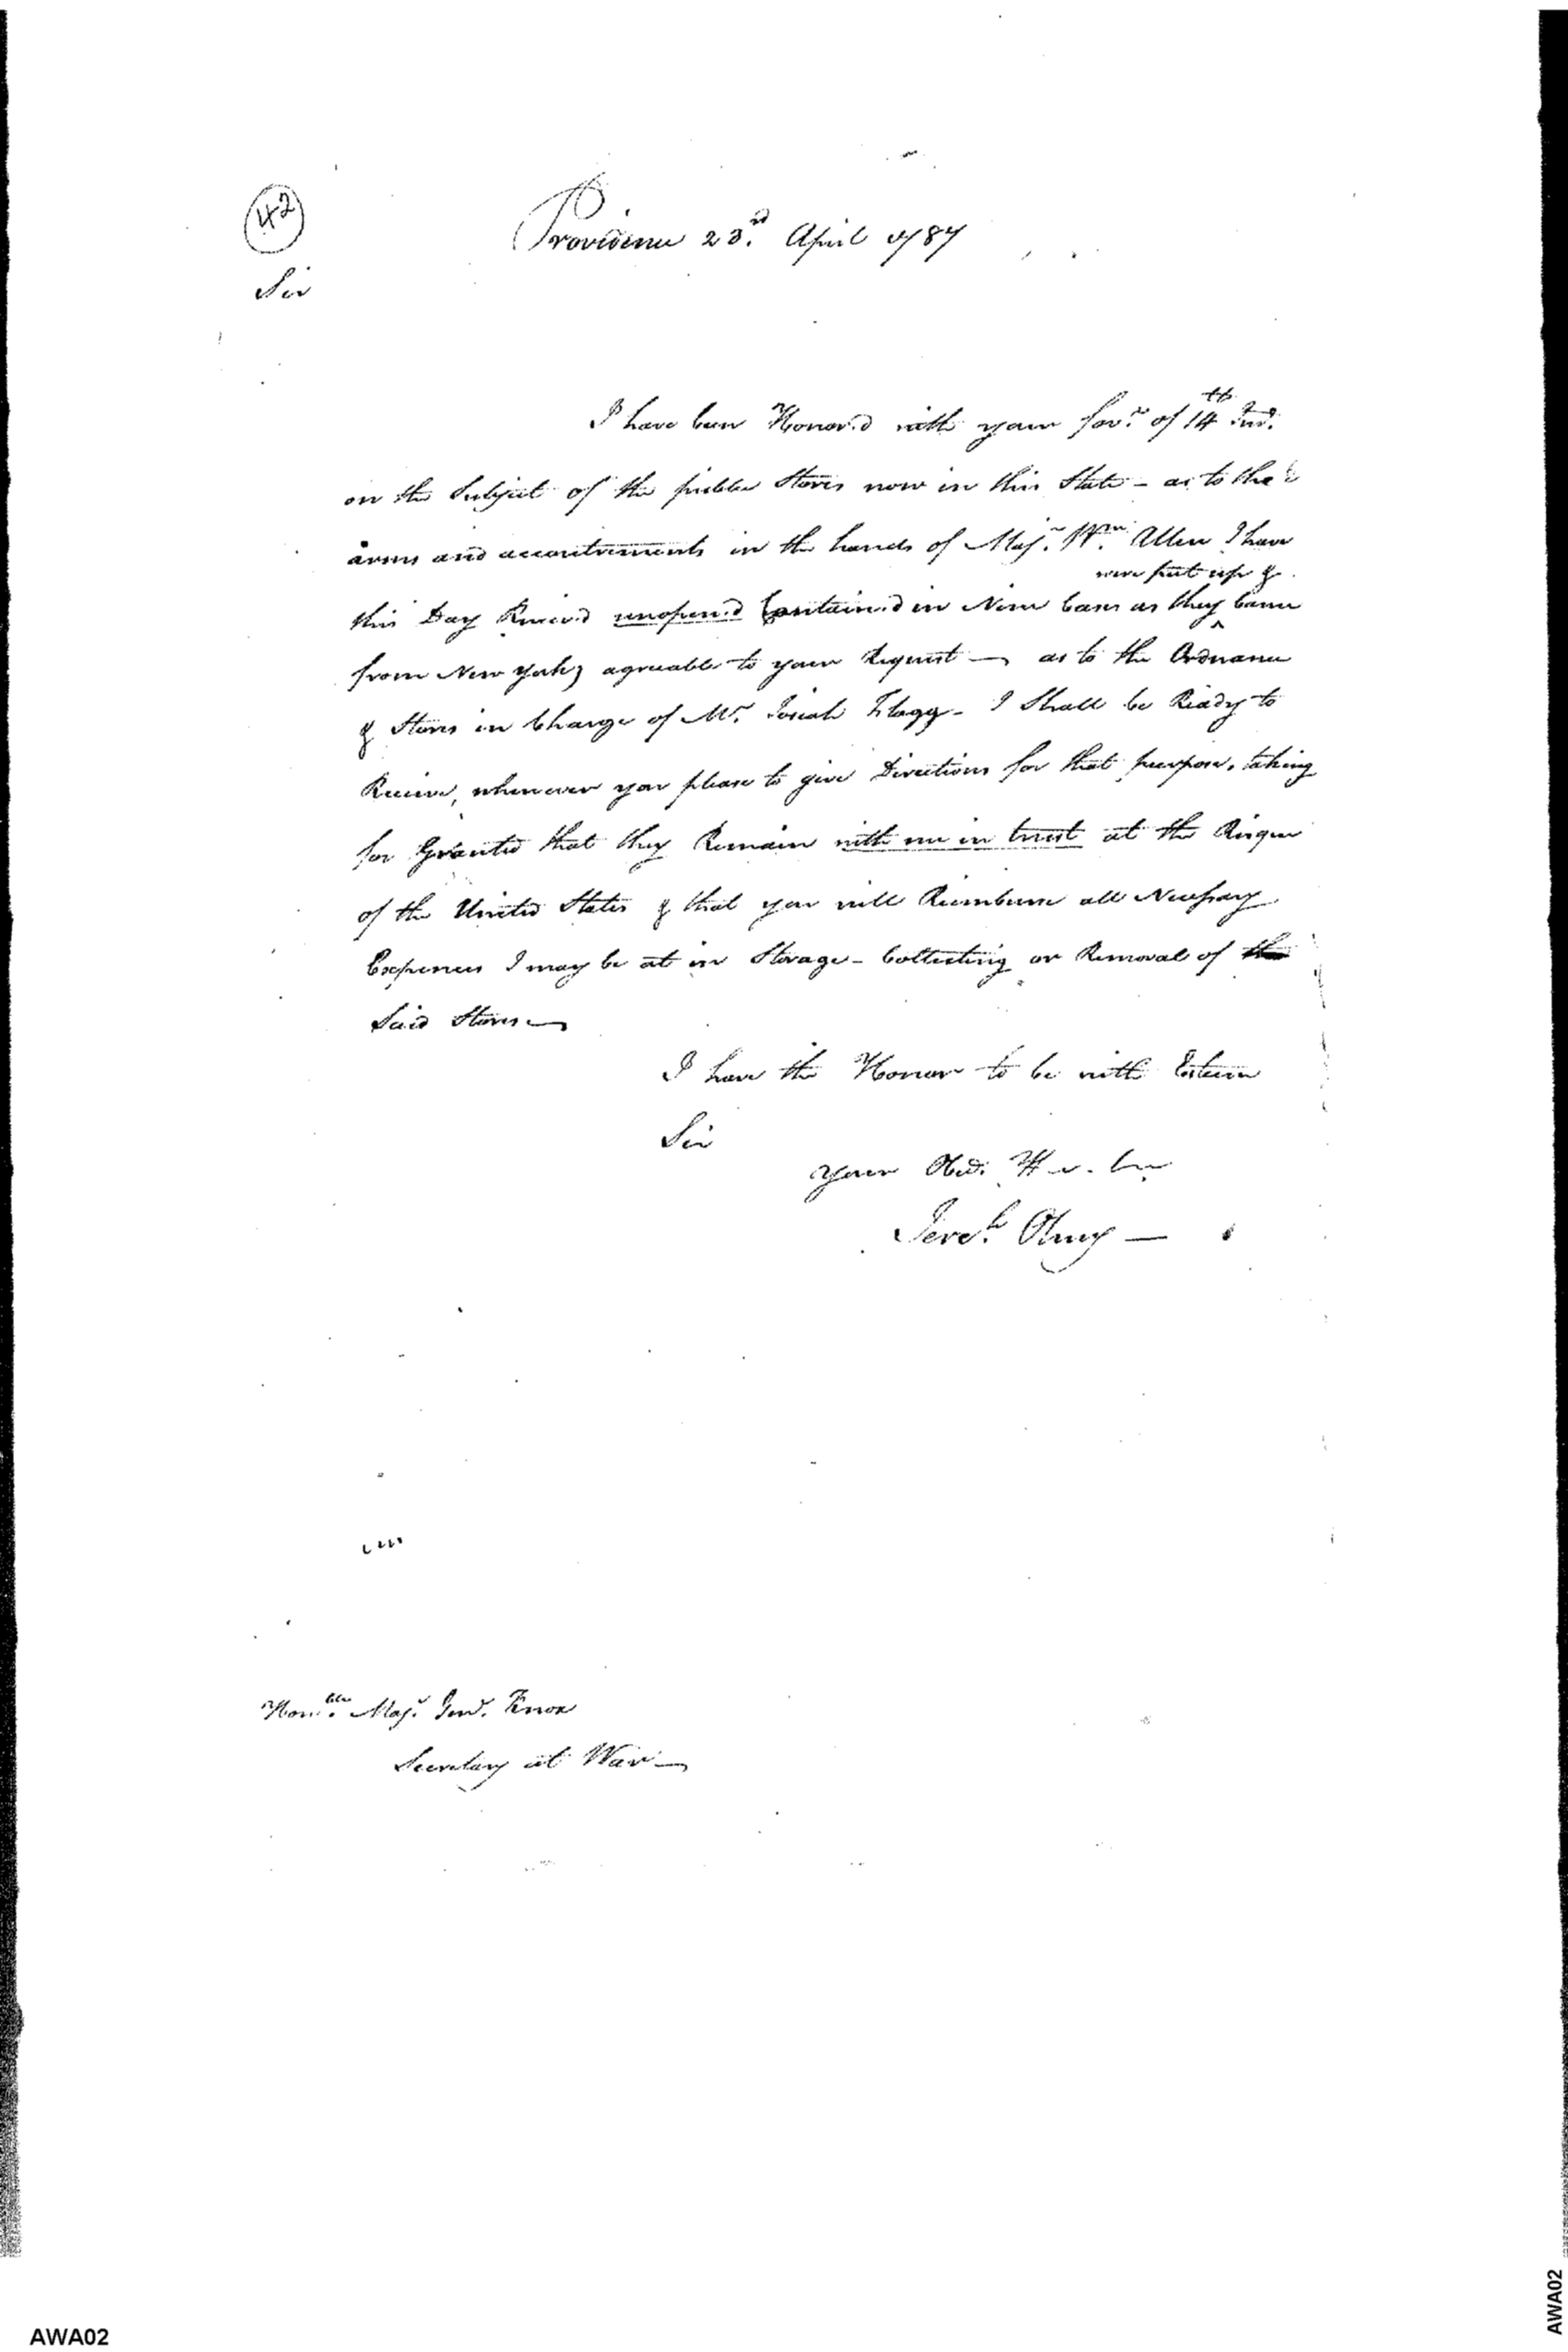 42
Providence 23.d April 1787
Sir
I have been Honor.d with your fav.r of 14th Inst.
on the Subject of the public Stores now in this State - as to the
arms and accoutrements in the hands of Maj.r Wm. Allen I have
were put up &
this Day Receiv.d unopen.d Contain.d in Nine Cases as they ^ Came
from New York, agreeable to your Request — as to the Ordnance
& Stores in Charge of Mr. Josiah Flagg - I Shall be Ready to
Receive, whenever you please to give Directions for that purpose, taking
for Granted that they Remain with me in trust at the Risque
of the United States & that you will Reimburse all Necessary
Expences I may be at in Storage - Collecting or Removal of the
Said Stores —
I have the Honor to be with Esteem
Sir
your Obd.
Jere.h Olney —
Hon.ble Maj.r Genl. Knox
Secretary at War —
AWA02
AWA02